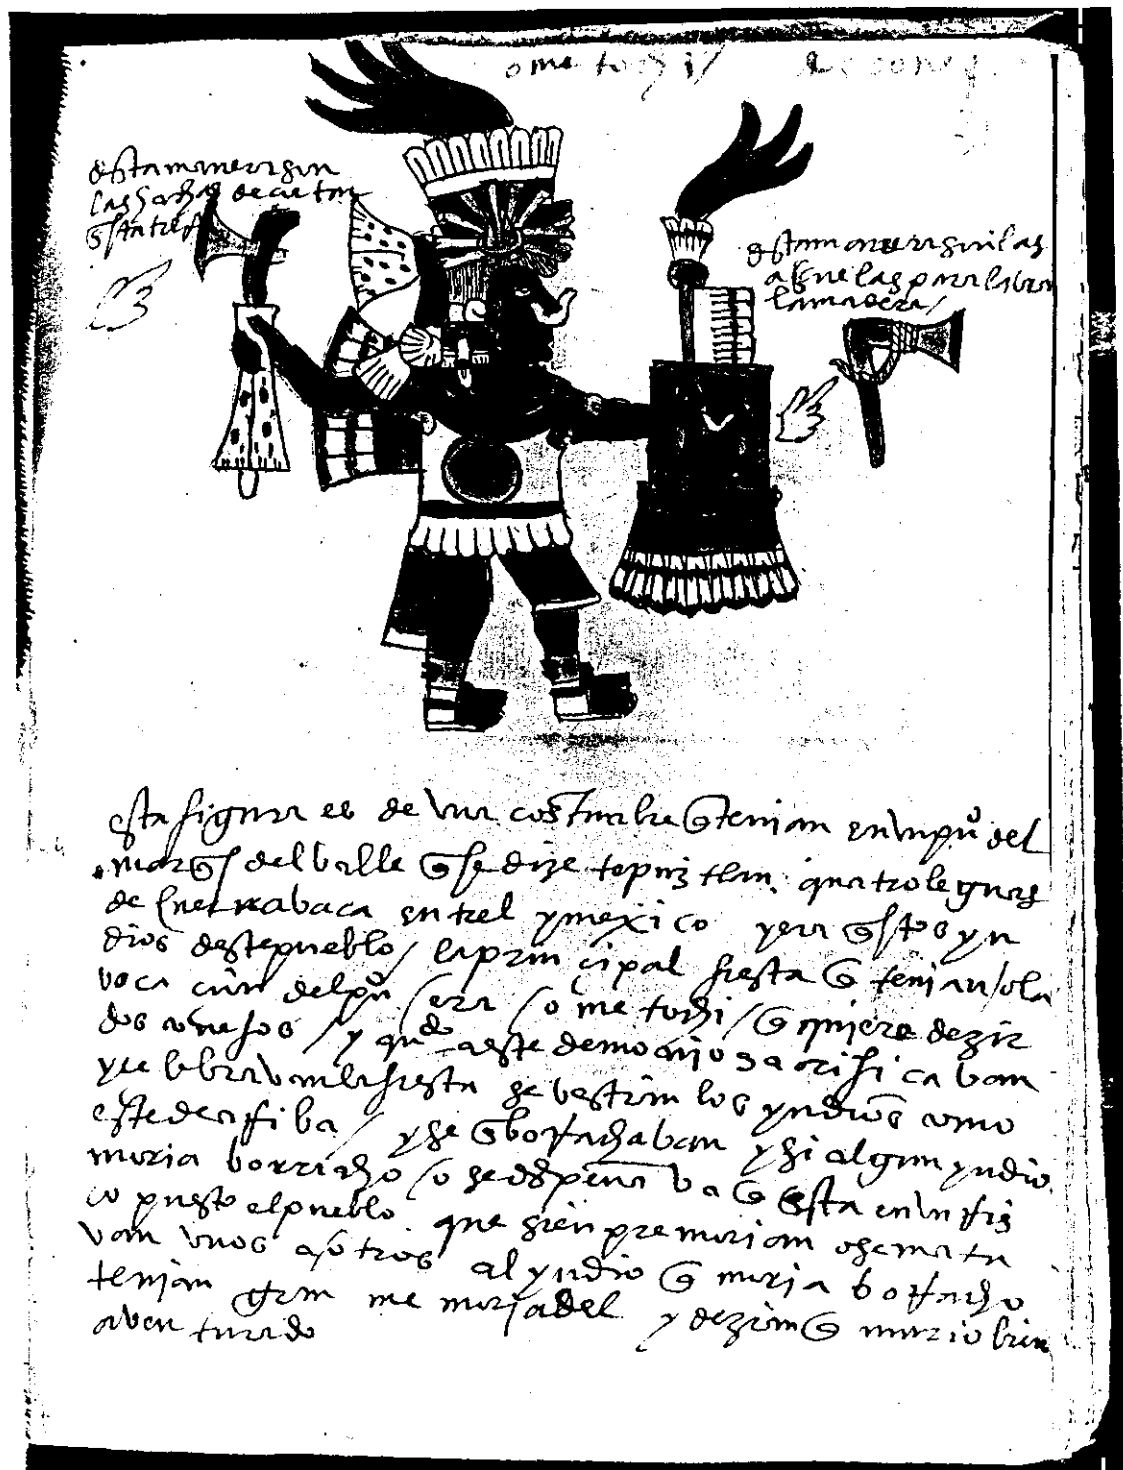 ome tochi /
desta manera son
las hachas de cortar
esta tref
desta manera son las
açuelas para labrar
la madera /
esta figura es de una costumbre q̃ tenian en un pu͠o del
marq̃s del valle q̃ se dize tepuztlan. quatro leguas
de cuernabaca entrel y mexico y era q̃ stos yn
dios deste pueblo / la prinçipal fiesta q̃ tenian / ola
voca ciõn del pu͠o / era / ometochi / q̃ quiere dezir
dos conejos / y qu͠do a este demonio sacrificaban
y le lebravan la fiesta se bestian los yndios como
este de arriba / y se enborrachaban y si algun yndio
moria borracho / o se despeñava q̃ esta en un ris
co puesto el pueblo. que sienpre morian o se mata
van unos a otros al yndio q̃ moria borracho
tenian gran memoria del y dezian q̃ murio bien
aventurado